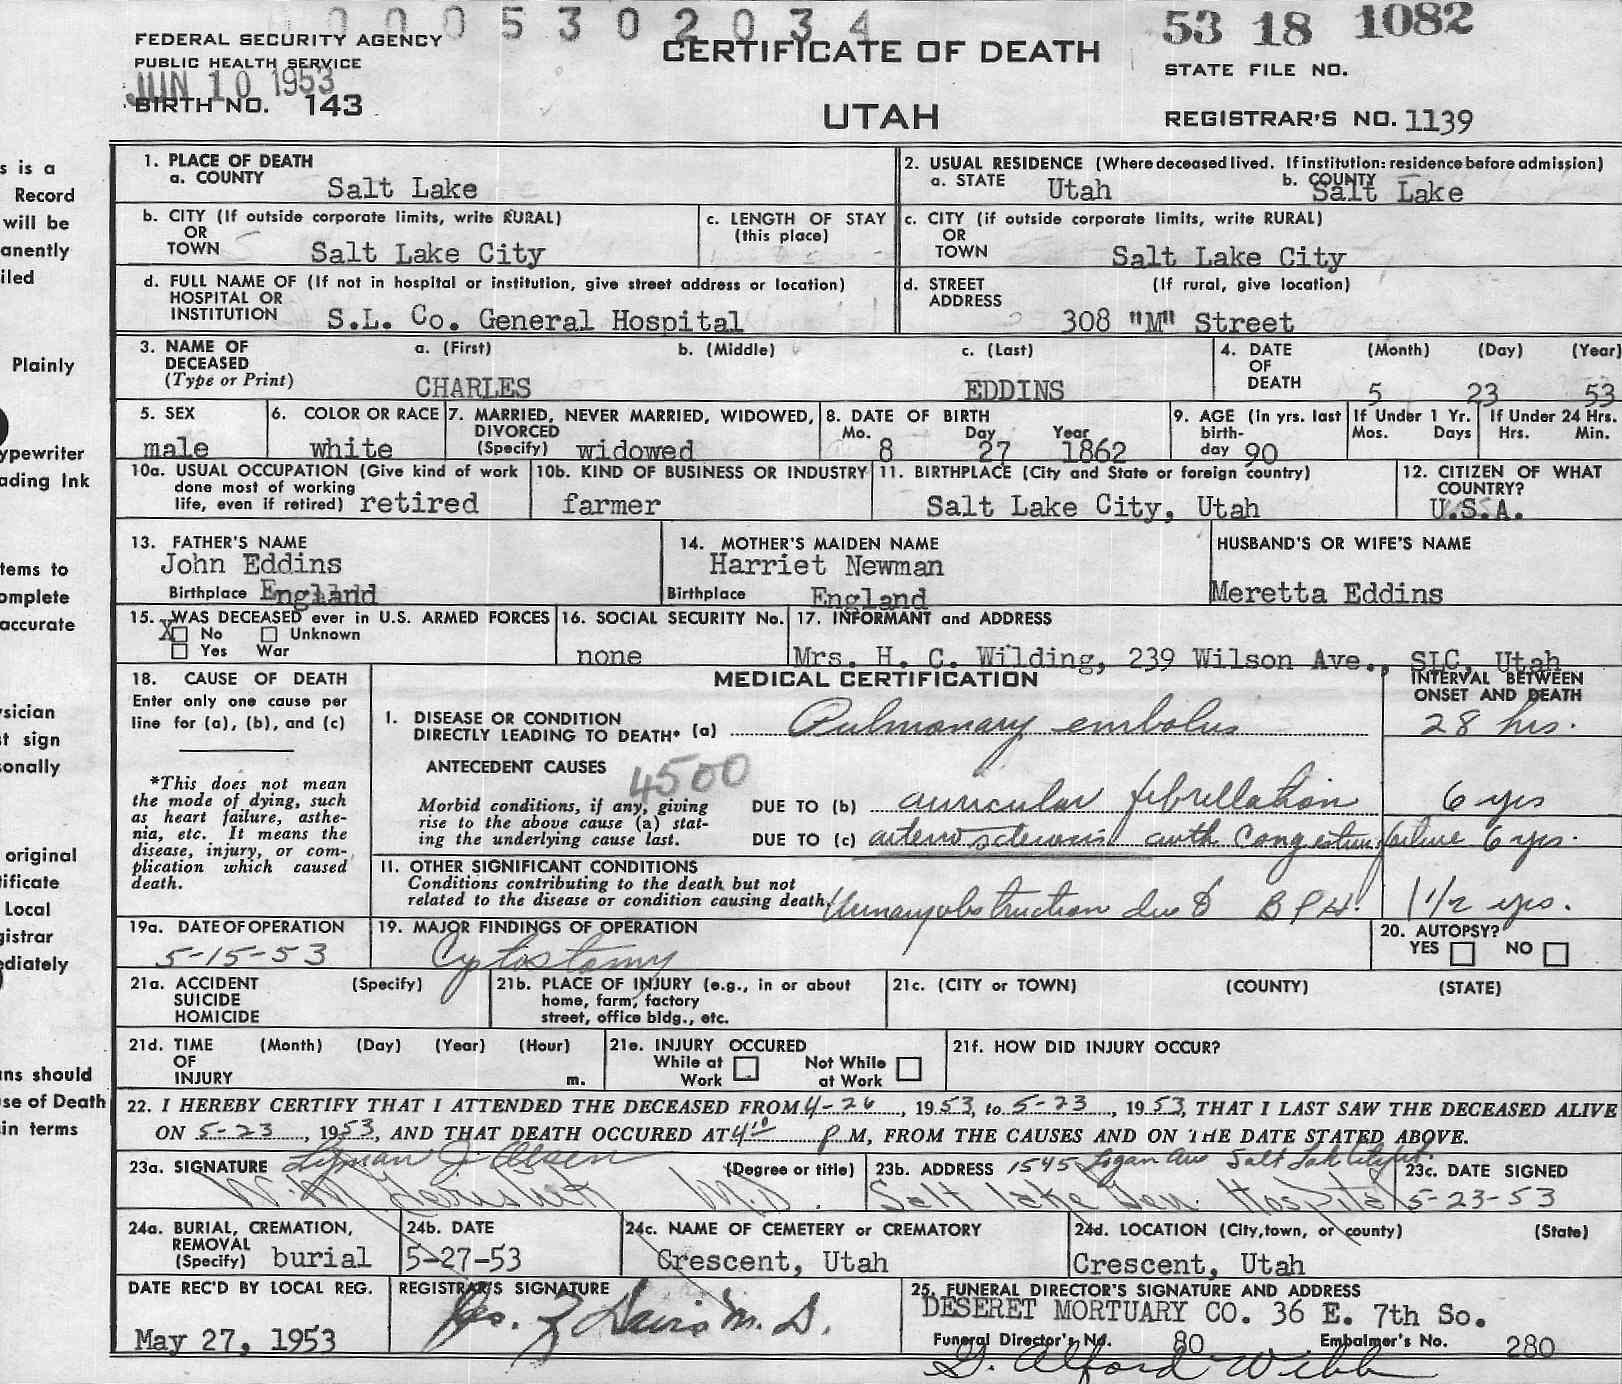 0005302034
53 18 1082
FEDERAL SECURITY AGENCY
PUBLIC HEALTH SERVICE
JUN 10 1953
BIRTH NO. 143
CERTIFICATE OF DEATH
UTAH
STATE FILE NO.
REGISTRAR'S NO. 1139
s is a
Record
will be
anently
iled
Plainly
ypewriter
ading Ink
tems to
omplete
accurate
ysician
st sign
sonally
original
tificate
Local
gistrar
ediately
ans should
se of Death
in terms
1. PLACE OF DEATH
a. COUNTY Salt Lake
2. USUAL RESIDENCE (Where deceased lived. If institution: residence before admission)
a. STATE Utah b. COUNTY Salt Lake
b. CITY (If outside corporate limits, write RURAL)
OR
TOWN Salt Lake City
c. LENGTH OF STAY
(this place)
c. CITY (if outside corporate limits, write RURAL)
OR
TOWN Salt Lake City
d. FULL NAME OF (If not in hospital or institution, give street address or location)
HOSPITAL OR
INSTITUTION S.L. Co. General Hospital
d. STREET (If rural, give location)
ADDRESS
308 "M" Street
3. NAME OF a. (First) b. (Middle) c. (Last)
DECEASED
(Type or Print) CHARLES EDDINS
4. DATE (Month) (Day) (Year)
OF
DEATH 5 23 53
5. SEX
male
6. COLOR OR RACE
white
7. MARRIED, NEVER MARRIED, WIDOWED,
DIVORCED
(Specify) widowed
8. DATE OF BIRTH
Mo. Day Year
8 27 1862
9. AGE (in yrs. last
birth-
day 90
If Under 1 Yr.
Mos. Days
If Under 24 Hrs.
Hrs. Min.
10a. USUAL OCCUPATION (Give kind of work
done most of working
life, even if retired) retired
10b. KIND OF BUSINESS OR INDUSTRY
farmer
11. BIRTHPLACE (City and State or foreign country)
Salt Lake City, Utah
12. CITIZEN OF WHAT
COUNTRY?
U.S.A.
13. FATHER'S NAME
John Eddins
Birthplace England
14. MOTHER'S MAIDEN NAME
Harriet Newman
Birthplace England
HUSBAND'S OR WIFE'S NAME
Meretta Eddins
15. WAS DECEASED ever in U.S. ARMED FORCES
X No Unknown
Yes War
16. SOCIAL SECURITY No.
none
17. INFORMANT and ADDRESS
Mrs. H. C. Wilding, 239 Wilson Ave., SLC, Utah
18. CAUSE OF DEATH
Enter only one cause per
line for (a), (b), and (c)
*This does not mean
the mode of dying, such
as heart failure, asthe-
nia, etc. It means the
disease, injury, or com-
plication which caused
death.
MEDICAL CERTIFICATION
INTERVAL BETWEEN
ONSET AND DEATH
I. DISEASE OR CONDITION
DIRECTLY LEADING TO DEATH* (a) Pulmonary embolus 28 hrs.
ANTECEDENT CAUSES 4500
Morbid conditions, if any, giving
rise to the above cause (a) stat-
ing the underlying cause last.
DUE TO (b) auricular fibrellation 6 yrs
DUE TO (c) arteriosclerosis with Congestive failure 6 yrs.
II. OTHER SIGNIFICANT CONDITIONS
Conditions contributing to the death but not
related to the disease or condition causing death. Urinary obstruction due to BPH. 1 1/2 yrs.
19a. DATE OF OPERATION
5-15-53
19. MAJOR FINDINGS OF OPERATION
Cystostomy
20. AUTOPSY?
YES NO
21a. ACCIDENT (Specify)
SUICIDE
HOMICIDE
21b. PLACE OF INJURY (e.g., in or about
home, farm, factory
street, office bldg., etc.
21c. (CITY or TOWN) (COUNTY) (STATE)
21d. TIME (Month) (Day) (Year) (Hour)
OF
INJURY m.
21e. INJURY OCCURED
While at Work
Not While at Work
21f. HOW DID INJURY OCCUR?
22. I HEREBY CERTIFY THAT I ATTENDED THE DECEASED FROM 4-26, 1953, to 5-23, 1953, THAT I LAST SAW THE DECEASED ALIVE
ON 5-23, 1953, AND THAT DEATH OCCURED AT 4 10 P M, FROM THE CAUSES AND ON THE DATE STATED ABOVE.
23a. SIGNATURE (Degree or title)
Lyman J. Olsen
M.D.
23b. ADDRESS 1545 Logan Ave Salt Lake City Ut.
Salt Lake Gen. Hospital
23c. DATE SIGNED
5-23-53
24a. BURIAL, CREMATION,
REMOVAL
(Specify) burial
24b. DATE
5-27-53
24c. NAME OF CEMETERY or CREMATORY
Crescent, Utah
24d. LOCATION (City, town, or county) (State)
Crescent, Utah
DATE REC'D BY LOCAL REG.
May 27, 1953
REGISTRAR'S SIGNATURE
Davis M.D.
25. FUNERAL DIRECTOR'S SIGNATURE AND ADDRESS
DESERET MORTUARY CO. 36 E. 7th So.
Funeral Director's No. 80 Embalmer's No. 280
D. Alford Webb